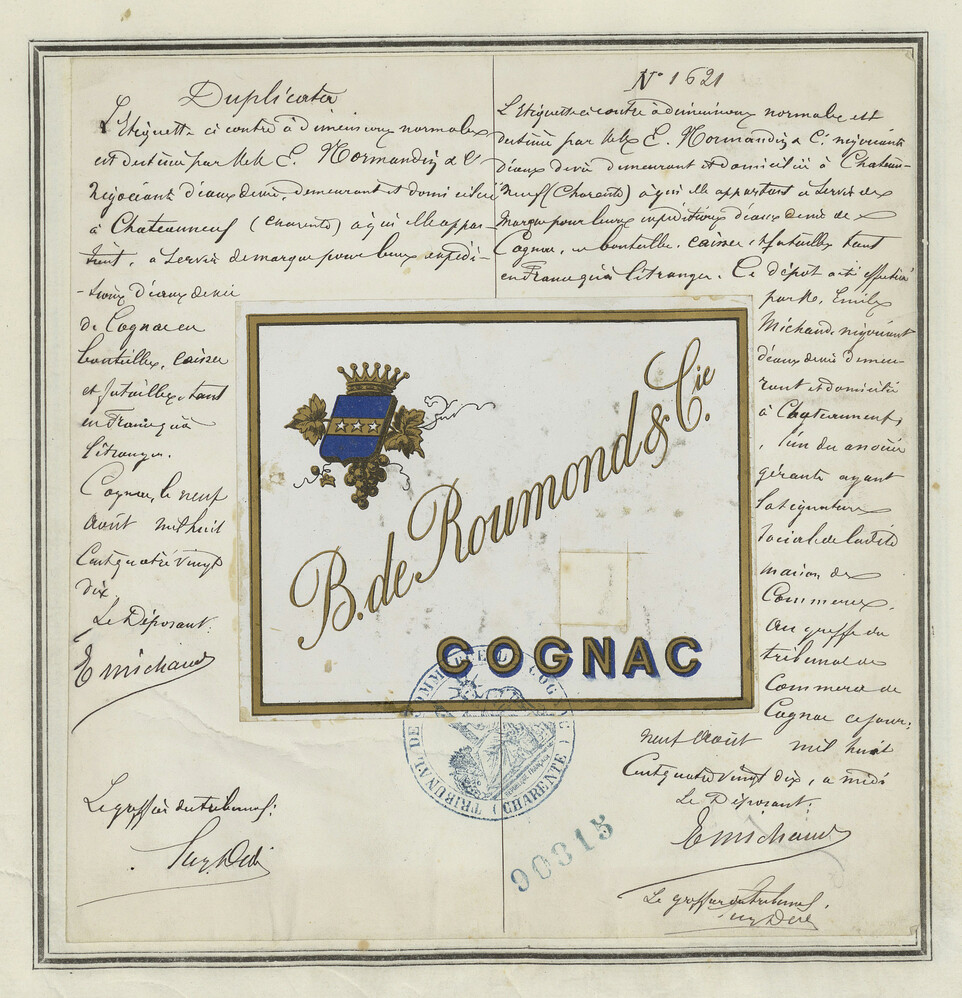 Duplicata
L'Etiquette ci contre à dimensions normales
est destinée par MM E. Normandin & Cie
négociants d'eaux de vie, demeurant et domiciliés
à Chateauneuf (Charente) à qui elle appar-
tient, à servir de marque pour leurs expédi-
-tions d'eaux de vie
de Cognac en
bouteilles, caisses
et futailles, tant
en France qu'à
l'étranger.
Cognac, le neuf
août mil huit
cent quatre vingt
dix
Le Déposant:
E Michaud
Le greffier du tribunal:
N° 1621
L'Etiquette ci contre à dimensions normales est
destinée par MM E. Normandin & Cie négociants
d'eaux de vie demeurant et domiciliés à Chateau-
neuf (Charente) à qui elle appartient à servir de
marque pour leurs expéditions d'eaux de vie de
Cognac, en bouteilles, caisses et futailles tant
en France qu'à l'étranger. Ce dépôt a été effectué
par M. Emile
Michaud, négociant
d'eaux de vie demeu-
rant et domicilié
à Chateauneuf,
l'un des associés
gérants ayant
la signature
sociale de ladite
maison de
Commerce.
Au greffe du
tribunal de
Commerce de
Cognac ce jour,
neuf Août mil huit
Cent quatre vingt dix, à midi
Le Déposant:
E Michaud
Le greffier du tribunal.
B. de Roumond & Cie.
COGNAC
TRIBUNAL DE COMMERCE DE COGNAC (CHARENTE)
REPUBLIQUE FRANÇAISE
90315